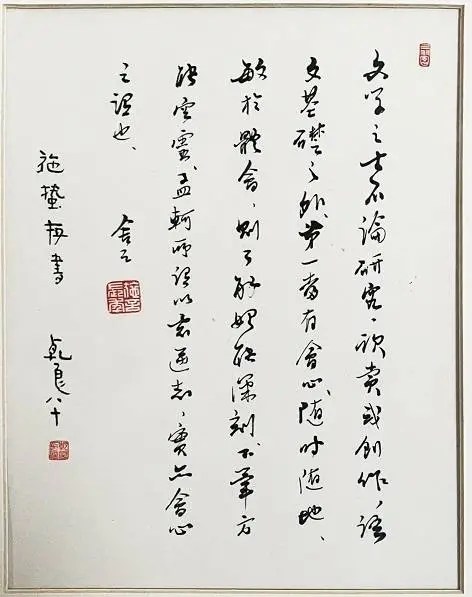 文学之士不論研究、欣賞或創作、語
文基礎之外、第一當有會心、随时随地、
敏於體會、則了解始能深刻、下筆方
能空靈、孟軻所謂以意逆志、實亦會心
之謂也、
舍之
施蟄存書
八十